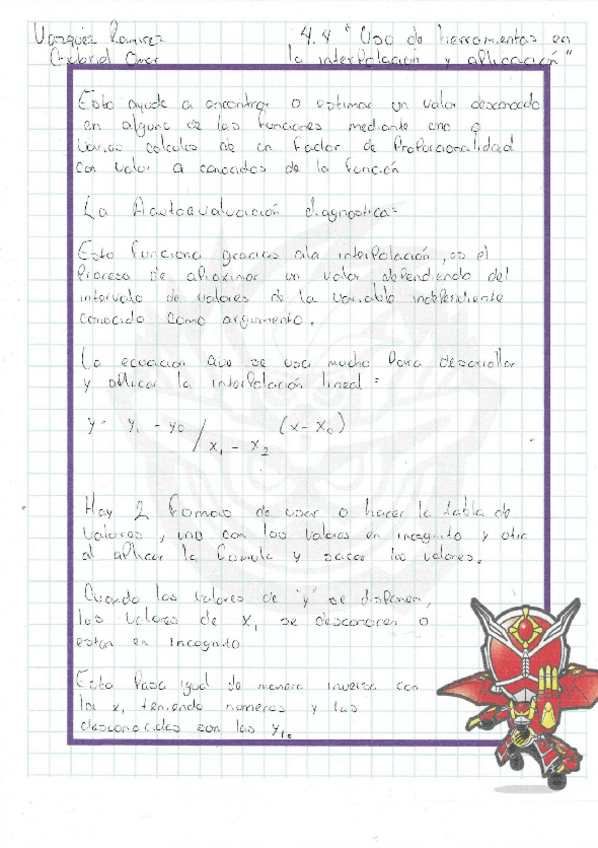 Vazquez Ramirez
Gabriel Omar
4.4 "Uso de herramientas en
la interpolación y aplicación"
Esto ayuda a encontrar o estimar un valor desconocido
en alguna de las funciones mediante uno o
varios calculos de un factor de Proporcionalidad
con valor a conocidos de la función
La Aautoevaluación diagnostica:
Esto funciona gracias ala interpolación, es el
Proceso de aproximar un valor dependiendo del
intervalo de valores de la variable independiente
conocido como argumento.
La ecuacion que se usa mucho para desarrollar
y aplicar la interpolación lineal =
y = y₁ - y₀ / x₁ - x₂ (x - x₀)
Hay 2 formas de usar o hacer la tabla de
valores, uno con los valores en incognito y otra
al aplicar la formula y sacar los valores.
Cuando los valores de "y" se disponen,
los valores de x, se desconocen o
están en incognito
Esto Pasa igual de manera inversa con
los x, teniendo numeros y las
desconocidas son las y₁.